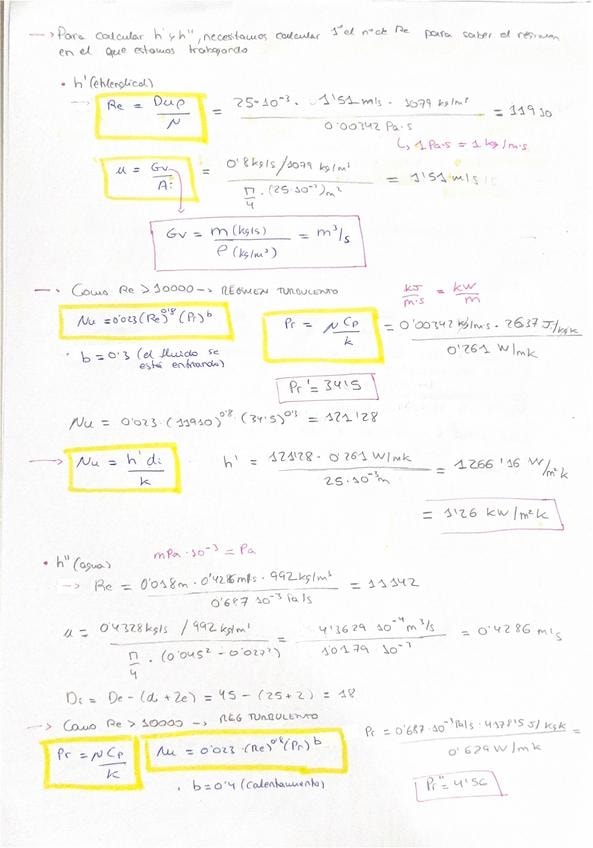 → Para calcular h' y h'', necesitamos calcular 1º el nº de Re para saber el régimen
en el que estamos trabajando
• h' (etilenglicol)
→ Re = Duρ/μ = 25·10⁻³ · 1'51 m/s · 1079 kg/m³ / 0'00342 Pa·s = 11910
↳ 1 Pa·s = 1 kg/m·s
u = Gv/Ai = 0'8 kg/s / 1079 kg/m³ / π/4 · (25·10⁻³) m² = 1'51 m/s
Gv = m (kg/s) / ρ (kg/m³) = m³/s
→ Como Re > 10000 → RÉGIMEN TURBULENTO
kJ/m·s = kW/m
Nu = 0'023 (Re)^0'8 (Pr)^b
Pr = μ Cp / k = 0'00342 kg/m·s · 2637 J/kg k / 0'261 W/mk
· b = 0'3 (el fluido se
está enfriando)
Pr' = 34'5
Nu = 0'023 · (11910)^0'8 · (34'5)^0'3 = 121'28
→ Nu = h' di / k
h' = 121'28 · 0'261 W/mk / 25·10⁻³ m = 1266'16 W/m²k
= 1'26 kW/m²k
• h'' (agua)
mPa·10⁻³ = Pa
→ Re = 0'018m · 0'4286 m/s · 992 kg/m³ / 0'687 10⁻³ Pa/s = 11142
u = 0'4328 kg/s / 992 kg/m³ / π/4 · (0'045² - 0'027²) = 4'3629 10⁻⁴ m³/s / 1'0179 10⁻³ = 0'4286 m/s
Di = De - (di + 2e) = 45 - (25+2) = 18
→ Como Re > 10000 → REG TURBULENTO
Pr = μ Cp / k
Nu = 0'023 · (Re)^0'8 (Pr)^b
Pr = 0'687·10⁻³ Pa/s · 4178'5 J/kg k / 0'629 W/mk =
· b = 0'4 (calentamiento)
Pr'' = 4'56